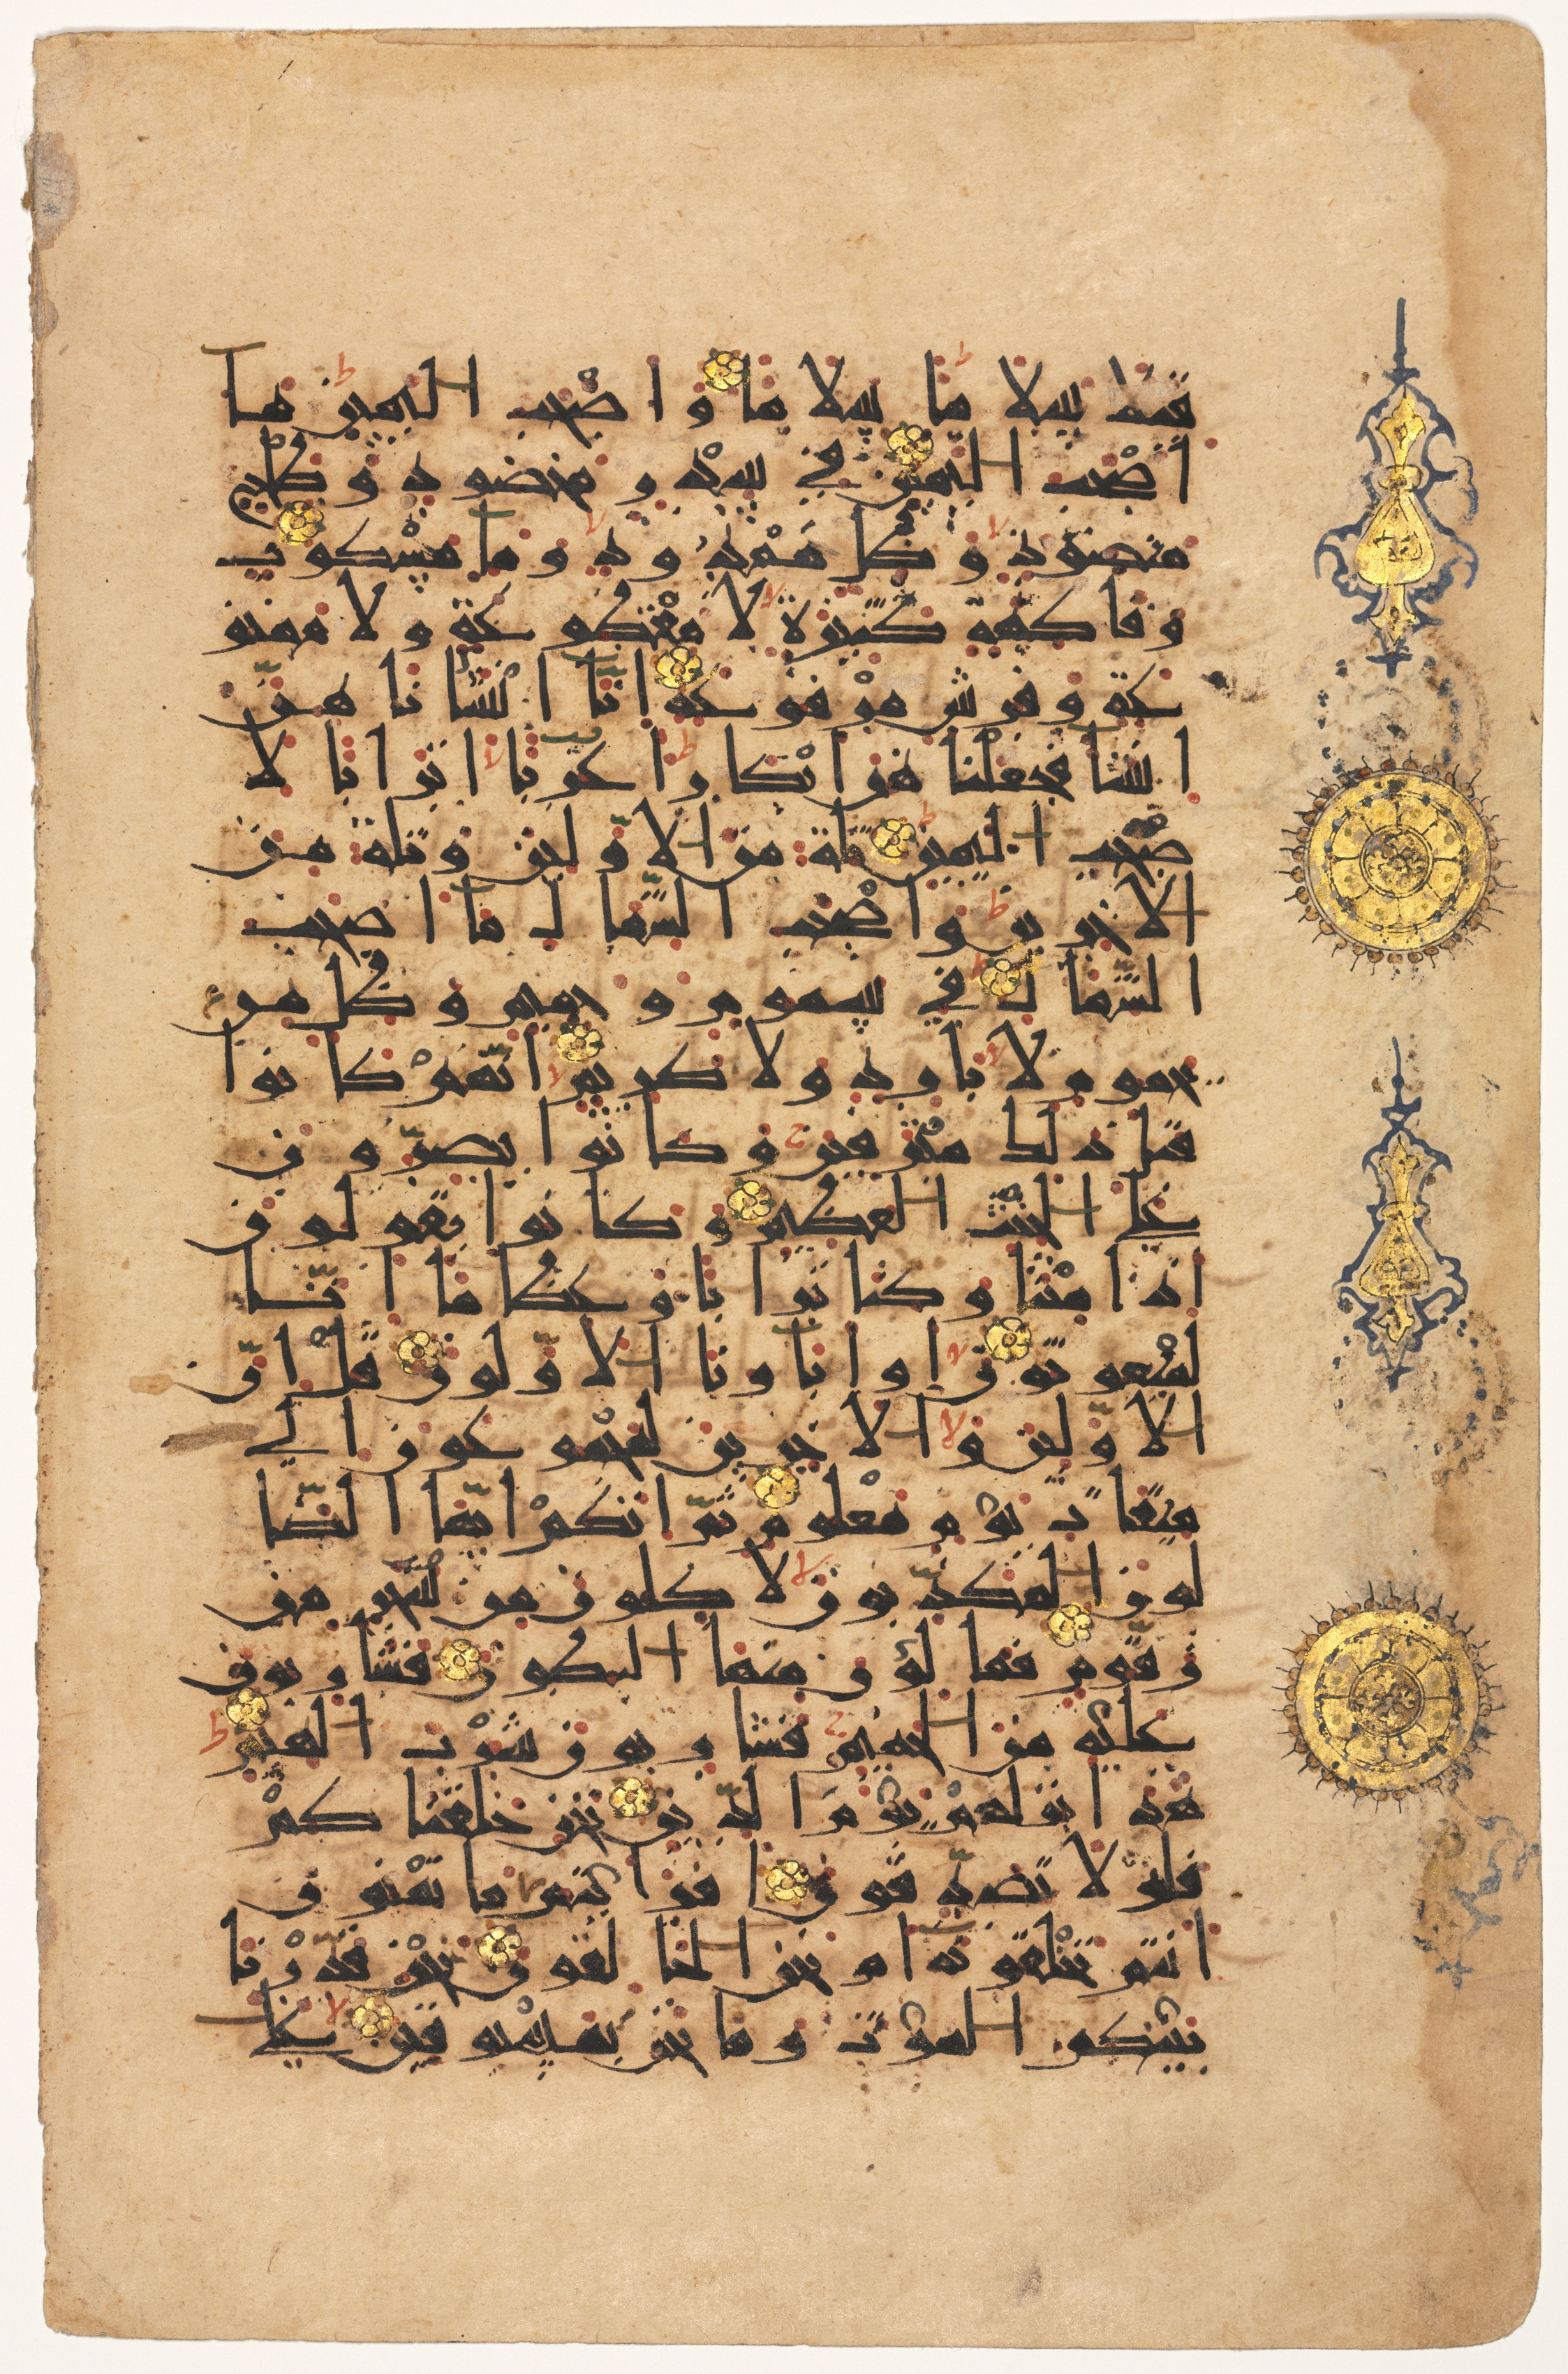 قيلا سلاما سلاما واصحب اليمين ما
اصحب اليمين في سدر مخضود وطلح
منضود وظل ممدود وما مسكوب
وفاكهة كثيرة لا مقطوعة ولا ممنو
عة وفرش مرفوعة انّا انشانا هنّ
انشا فجعلنا هن ابكارا عربا اترابا لا
صحب اليمين ثلة من الاوّلين وثلة من
الاخرين واصحب الشّمال ما اصحب
الشّمال في سموم وحميم وظل من
يحموم لا بارد ولا كريم انّهم كانوا
قبل ذلك مترفين وكانوا يصرّون
على الحنث العظيم وكانوا يقولون
ائذا متنا وكنا ترابا وعظاما انّا
لمبعوثون اواباونا الاوّلون قل انّ
الاوّلين والاخرين لمجموعون الى
ميقات يوم معلوم ثمّ انكم ايّها الضّا
لون المكذّبون لاكلون من شجر من
زقّوم فمالؤن منها البطون فشاربون
عليه من الحميم فشاربون شرب الهيم
هذا نزلهم يوم الدّين نحن خلقناكم
فلولا تصدّقون افرايتم ما تمنون
انتم تخلقونه ام نحن الخالقون نحن قدّرنا
بينكم الموت وما نحن بمسبوقين على